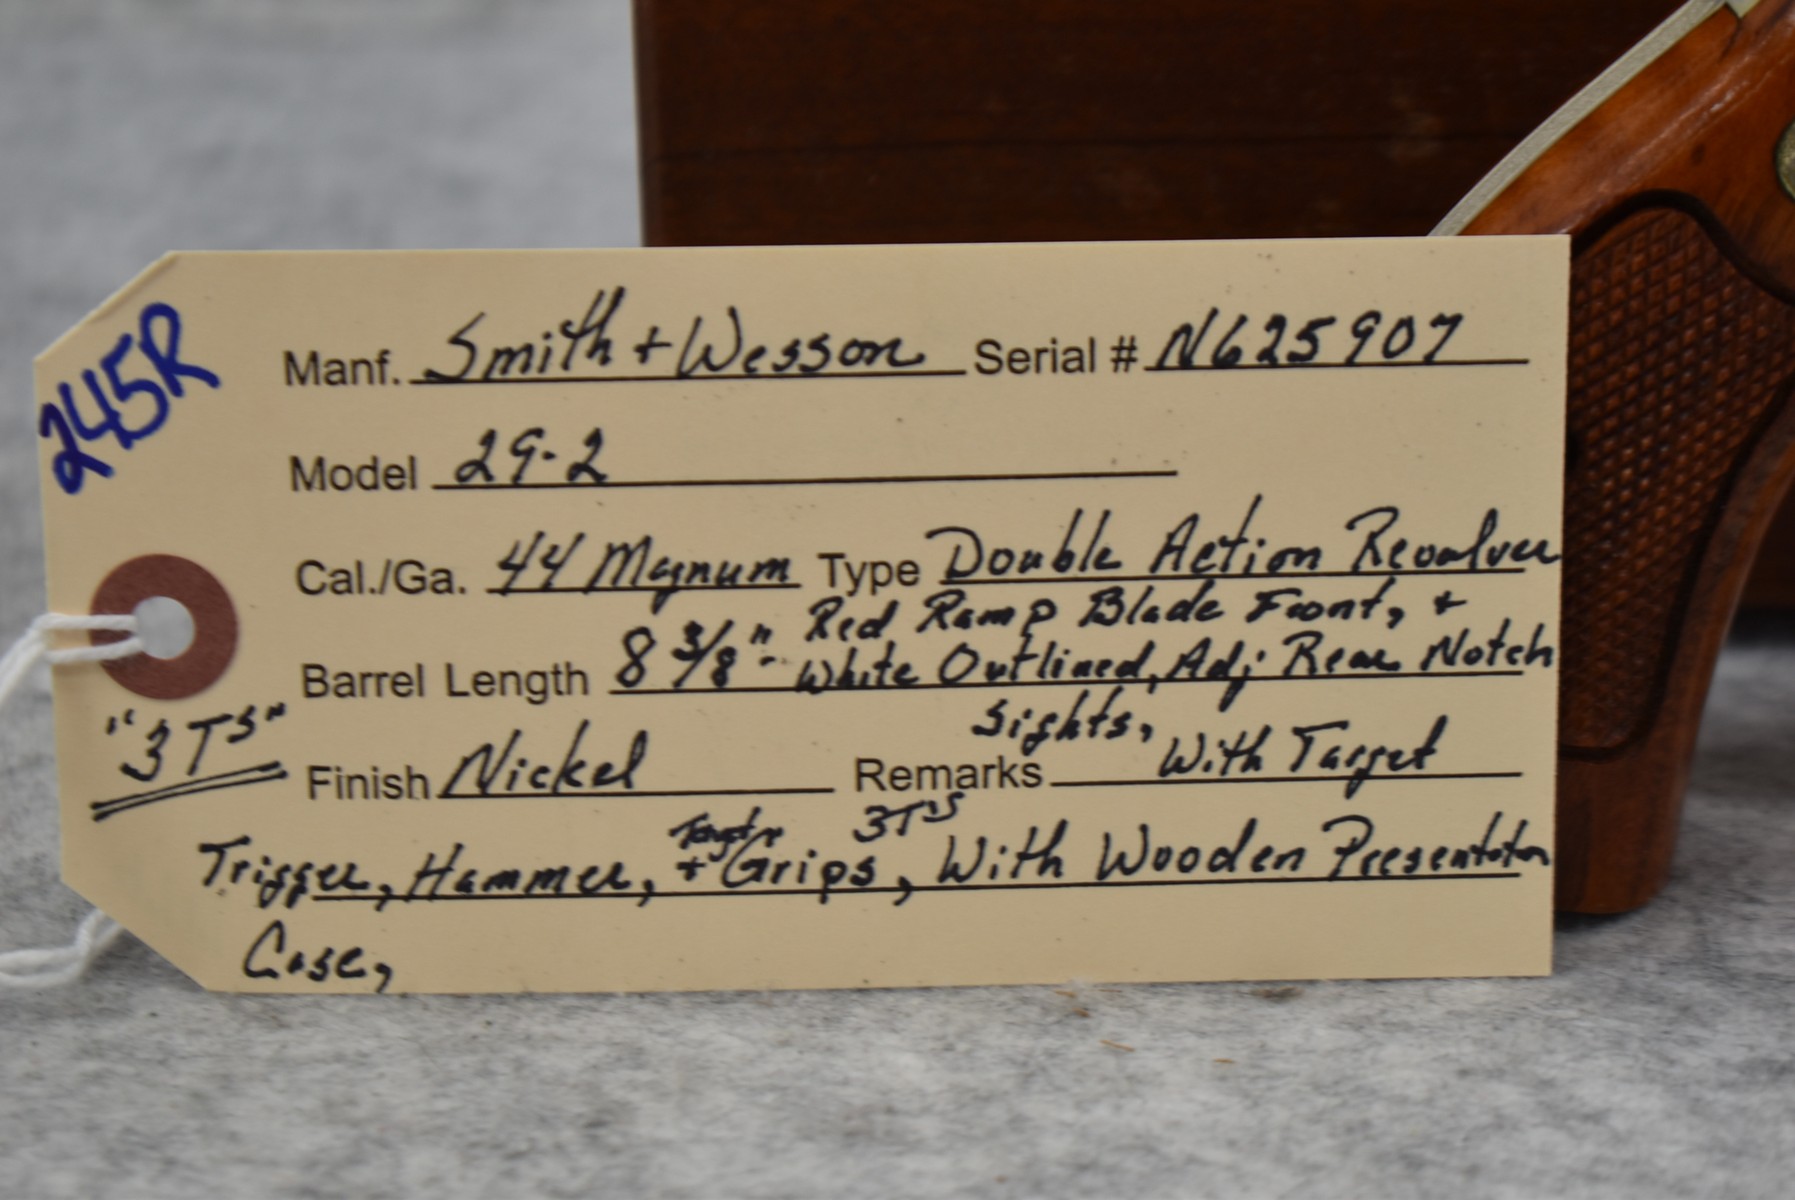 245R
Manf. Smith + Wesson Serial # N625907
Model 29-2
Cal./Ga. 44 Magnum Type Double Action Revolver
Red Ramp Blade Front, +
Barrel Length 8 3/8" - White Outlined, Adj Rear Notch
Sights,
"3 TS"
Finish Nickel Remarks With Target
3T'S
Trigger, Hammer, + Grips, With Wooden Presentation
Case,